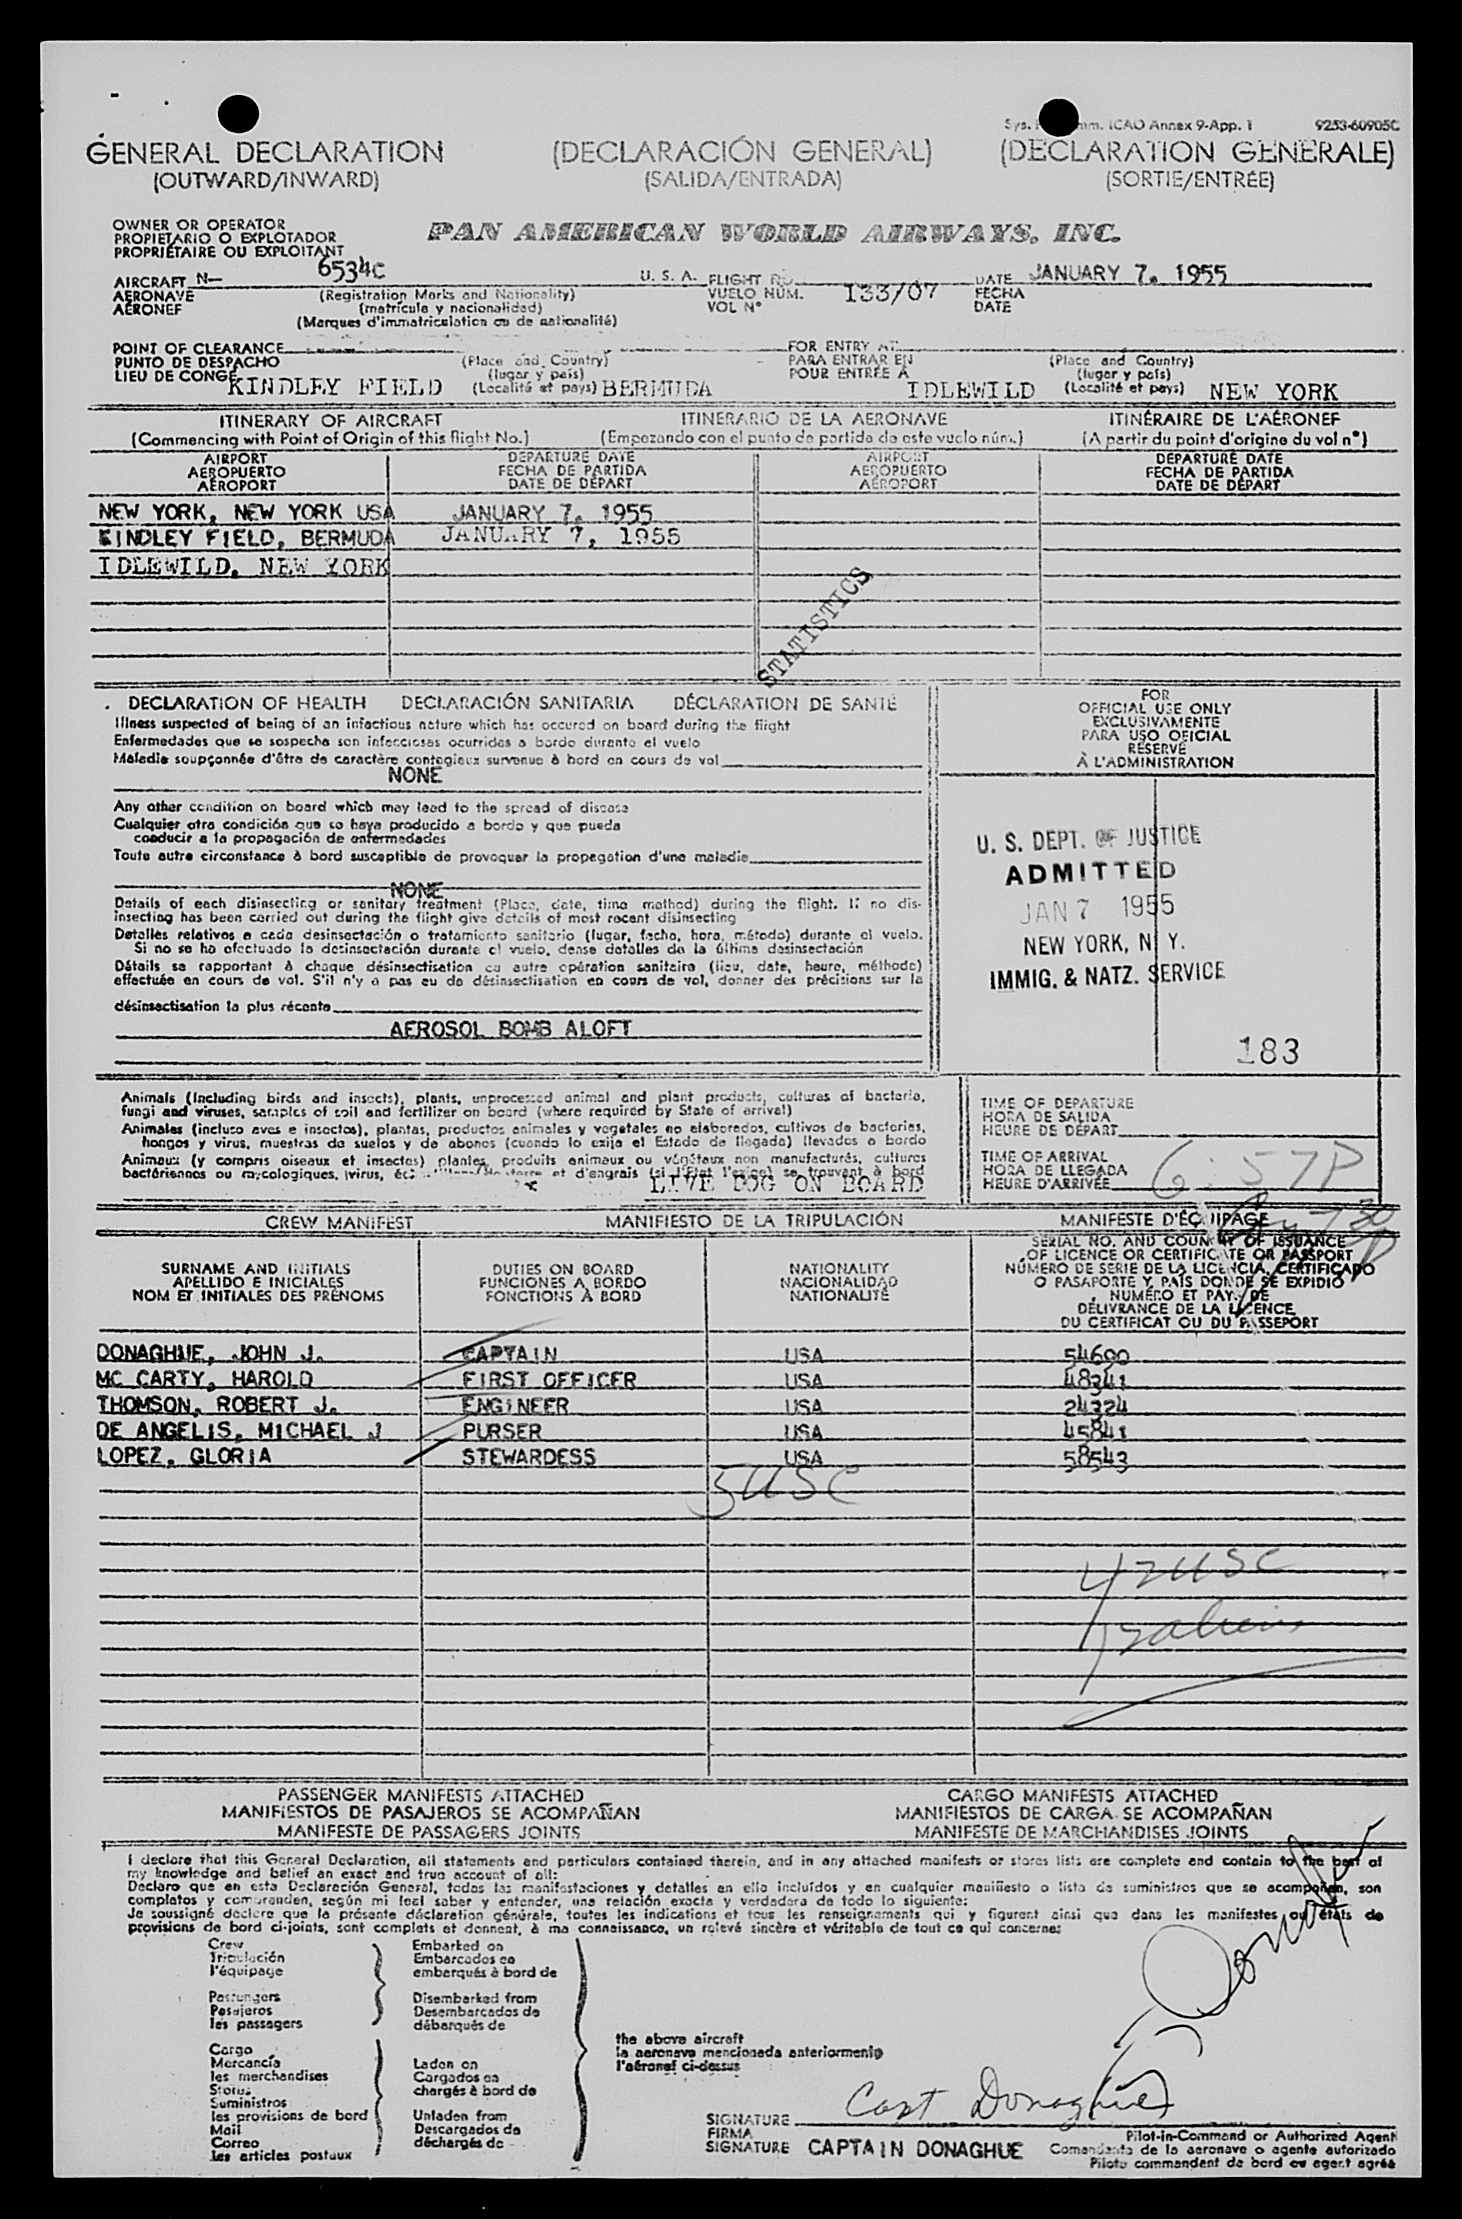 mm. ICAO Annex 9-App. 1 9253-60905C
GENERAL DECLARATION (DECLARACIÓN GENERAL) (DÉCLARATION GÉNÉRALE)
(OUTWARD/INWARD) (SALIDA/ENTRADA) (SORTIE/ENTRÉE)
OWNER OR OPERATOR
PROPIETARIO O EXPLOTADOR
PROPRIÉTAIRE OU EXPLOITANT
PAN AMERICAN WORLD AIRWAYS, INC.
AIRCRAFT N- 6534C U. S. A. FLIGHT NO. DATE JANUARY 7, 1955
AERONAVE (Registration Marks and Nationality) VUELO NÚM. 133/07 FECHA
AÉRONEF (matrícula y nacionalidad) VOL N° DATE
(Marques d'immatriculation ou de nationalité)
POINT OF CLEARANCE FOR ENTRY AT
PUNTO DE DESPACHO (Place and Country) PARA ENTRAR EN (Place and Country)
LIEU DE CONGÉ (lugar y país) POUR ENTRÉE À (lugar y país)
KINDLEY FIELD (Localité et pays) BERMUDA IDLEWILD (Localité et pays) NEW YORK
ITINERARY OF AIRCRAFT ITINERARIO DE LA AERONAVE ITINÉRAIRE DE L'AÉRONEF
(Commencing with Point of Origin of this flight No.) (Empezando con el punto de partida de este vuelo núm.) (A partir du point d'origine du vol n°)
AIRPORT DEPARTURE DATE AIRPORT DEPARTURE DATE
AEROPUERTO FECHA DE PARTIDA AEROPUERTO FECHA DE PARTIDA
AÉROPORT DATE DE DÉPART AÉROPORT DATE DE DÉPART
NEW YORK, NEW YORK USA JANUARY 7, 1955
KINDLEY FIELD, BERMUDA JANUARY 7, 1955
IDLEWILD, NEW YORK
STATISTICS
DECLARATION OF HEALTH DECLARACIÓN SANITARIA DÉCLARATION DE SANTÉ
Illness suspected of being of an infectious nature which has occured on board during the flight
Enfermedades que se sospecha son infecciosas ocurridas a bordo durante el vuelo
Maladie soupçonnée d'être de caractère contagieux survenue à bord en cours de vol
NONE
Any other condition on board which may lead to the spread of disease
Cualquier otra condición que se haya producido a bordo y que pueda
conducir a la propagación de enfermedades
Toute autre circonstance à bord susceptible de provoquer la propagation d'une maladie
NONE
Details of each disinsecting or sanitary treatment (Place, date, time method) during the flight. If no dis-
insecting has been carried out during the flight give details of most recent disinsecting
Detalles relativos a cada desinsectación o tratamiento sanitario (lugar, fecha, hora, método) durante el vuelo.
Si no se ha efectuado la desinsectación durante el vuelo, dense detalles de la última desinsectación
Détails se rapportant à chaque désinsectisation ou autre opération sanitaire (lieu, date, heure, méthode)
effectuée en cours de vol. S'il n'y a pas eu de désinsectisation en cours de vol, donner des précisions sur la
désinsectisation la plus récente
AEROSOL BOMB ALOFT
FOR
OFFICIAL USE ONLY
EXCLUSIVAMENTE
PARA USO OFICIAL
RÉSERVÉ
À L'ADMINISTRATION
U. S. DEPT. OF JUSTICE
ADMITTED
JAN 7 1955
NEW YORK, N. Y.
IMMIG. & NATZ. SERVICE
183
Animals (Including birds and insects), plants, unprocessed animal and plant products, cultures of bacteria,
fungi and viruses, samples of soil and fertilizer on board (where required by State of arrival)
Animales (incluso aves e insectos), plantas, productos animales y vegetales no elaborados, cultivos de bacterias,
hongos y virus, muestras de suelos y de abonos (cuando lo exija el Estado de llegada) llevados a bordo
Animaux (y compris oiseaux et insectes) plantes, produits animaux ou végétaux non manufacturés, cultures
bactériennes ou mycologiques, virus, et d'engrais (si l'État l'exige) se trouvant à bord
LIVE DOG ON BOARD
TIME OF DEPARTURE
HORA DE SALIDA
HEURE DE DÉPART
TIME OF ARRIVAL
HORA DE LLEGADA
HEURE D'ARRIVÉE
6:57P
CREW MANIFEST MANIFIESTO DE LA TRIPULACIÓN MANIFESTE D'ÉQUIPAGE
SURNAME AND INITIALS
APELLIDO E INICIALES
NOM ET INITIALES DES PRÉNOMS
DUTIES ON BOARD
FUNCIONES A BORDO
FONCTIONS À BORD
NATIONALITY
NACIONALIDAD
NATIONALITÉ
SERIAL NO. AND COUNTRY OF ISSUANCE
OF LICENCE OR CERTIFICATE OR PASSPORT
NÚMERO DE SERIE DE LA LICENCIA, CERTIFICADO
O PASAPORTE Y PAÍS DONDE SE EXPIDIÓ
NUMÉRO ET PAYS DE
DÉLIVRANCE DE LA LICENCE
DU CERTIFICAT OU DU PASSEPORT
DONAGHUE, JOHN J. CAPTAIN USA 54600
MC CARTY, HAROLD FIRST OFFICER USA 48341
THOMSON, ROBERT J. ENGINEER USA 24224
DE ANGELIS, MICHAEL J PURSER USA 45841
LOPEZ, GLORIA STEWARDESS USA 58543
5 USC
42 USC
aliens
PASSENGER MANIFESTS ATTACHED CARGO MANIFESTS ATTACHED
MANIFIESTOS DE PASAJEROS SE ACOMPAÑAN MANIFIESTOS DE CARGA SE ACOMPAÑAN
MANIFESTE DE PASSAGERS JOINTS MANIFESTE DE MARCHANDISES JOINTS
I declare that this General Declaration, all statements and particulars contained therein, and in any attached manifests or stores lists are complete and contain to the best of
my knowledge and belief an exact and true account of all:
Declaro que en esta Declaración General, todas las manifestaciones y detalles en ella incluídos y en cualquier manifiesto o lista de suministros que se acompañen, son
completos y comprenden, según mi leal saber y entender, una relación exacta y verdadera de todo lo siguiente:
Je soussigné déclare que la présente déclaration générale, toutes les indications et tous les renseignements qui y figurent ainsi que dans les manifestes ou états de
provisions de bord ci-joints, sont complets et donnent, à ma connaissance, un relevé sincère et véritable de tout ce qui concerne:
Crew
Tripulación
l'équipage
Passengers
Pasajeros
les passagers
Cargo
Mercancía
les merchandises
Stores
Suministros
les provisions de bord
Mail
Correo
les articles postaux
Embarked on
Embarcados en
embarqués à bord de
Disembarked from
Desembarcados de
débarqués de
Laden on
Cargados en
chargés à bord de
Unladen from
Descargados de
déchargés de
the above aircraft
la aeronave mencionada anteriormente
l'aéronef ci-dessus
Donaghue
Capt Donaghue
SIGNATURE
FIRMA
SIGNATURE CAPTAIN DONAGHUE
Pilot-in-Command or Authorized Agent
Comandante de la aeronave o agente autorizado
Pilote commandant de bord ou agent agréé